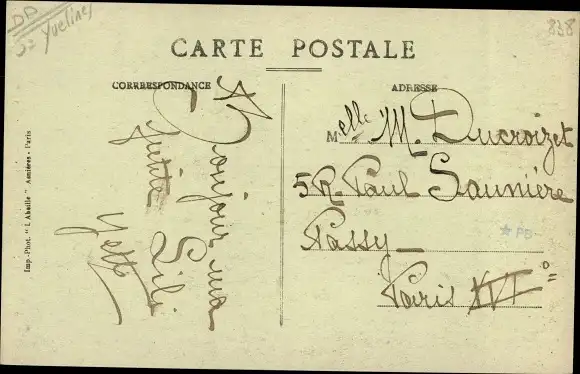 DP
Yvelines
838
CARTE POSTALE
CORRRESPONDANCE
ADRESSE
Bonjour ma
petite Lili
Yette
Melle M. Ducroizet
5 R. Paul Saunière
Passy
Paris XVIº
PB
Imp.-Phot. "L'Abeille" Asnières - Paris